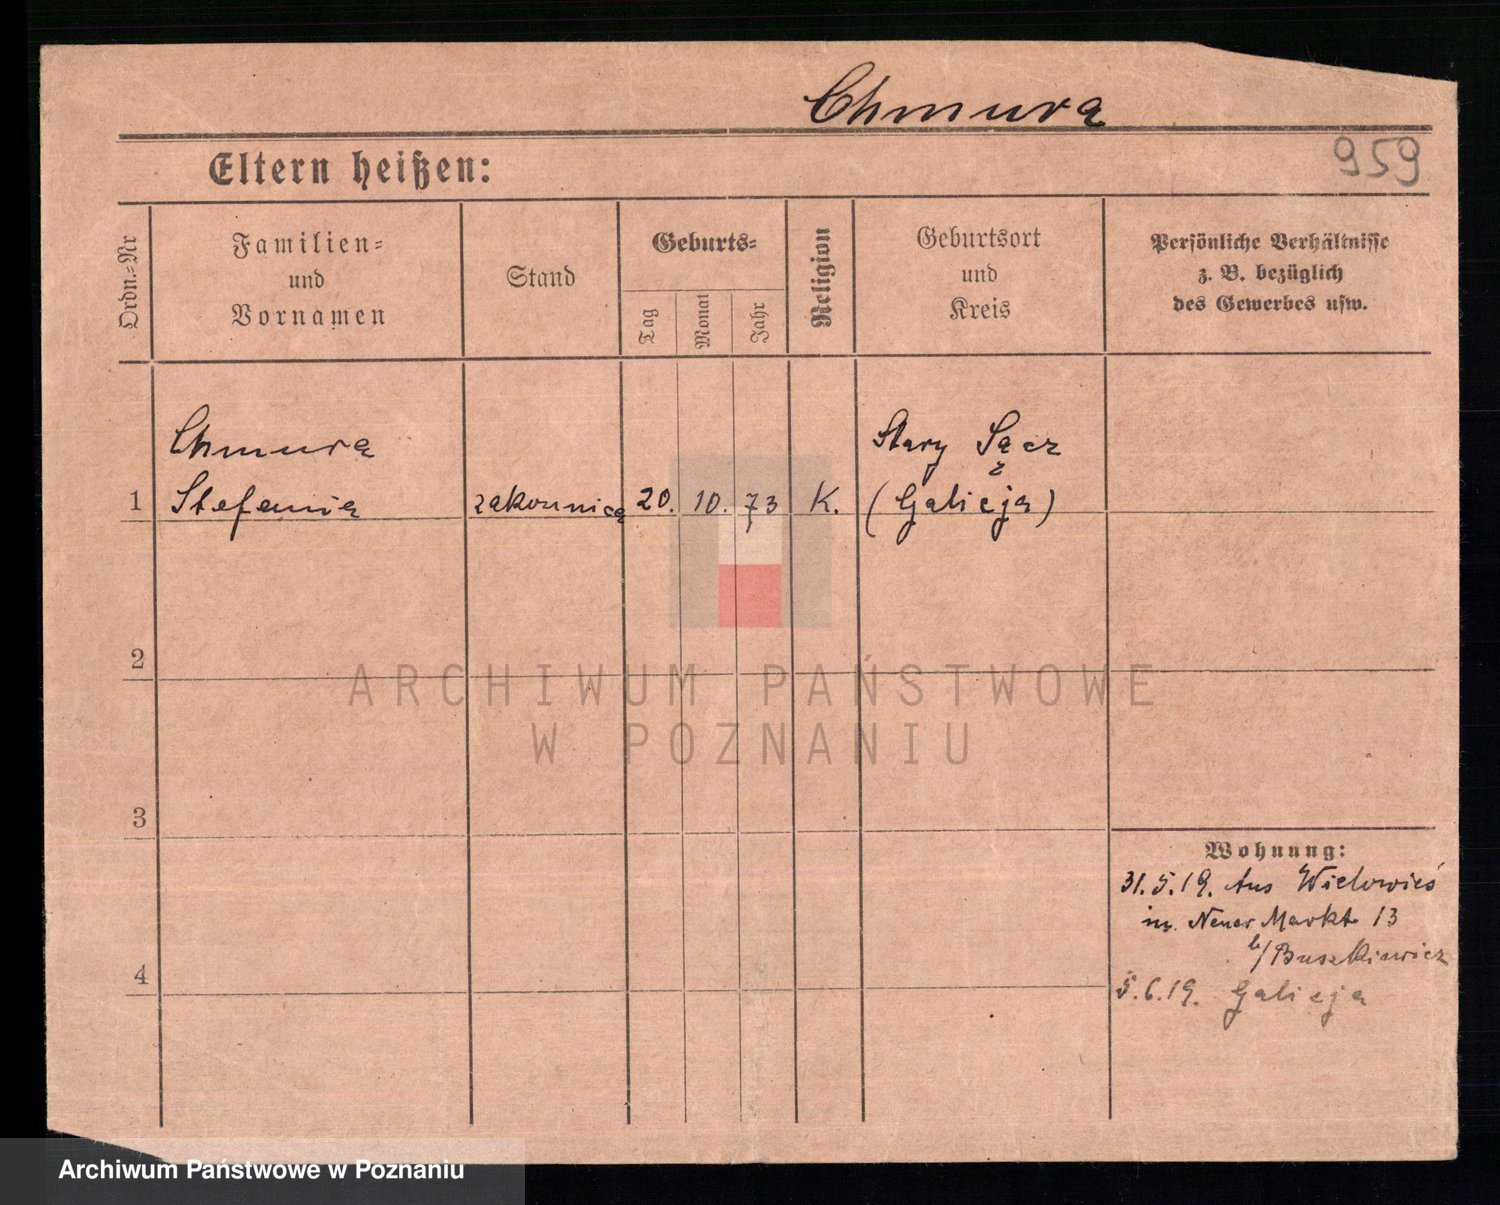 Chmura
Eltern heißen:
959
Ordn.-Nr
Familien-
und
Vornamen
Stand
Geburts-
Tag
Monat
Jahr
Religion
Geburtsort
und
Kreis
Persönliche Verhältnisse
z. B. bezüglich
des Gewerbes usw.
Chmura
Stary Sącz
1 Stefania zakonnica 20. 10. 73 K. (Galicja)
2
ARCHIWUM PAŃSTWOWE
W POZNANIU
3
Wohnung:
31.5.19. Aus Wielowieś
Neuer Markt 13
b/Buszkiewicz
4
5.6.19. Galicja
Archiwum Państwowe w Poznaniu